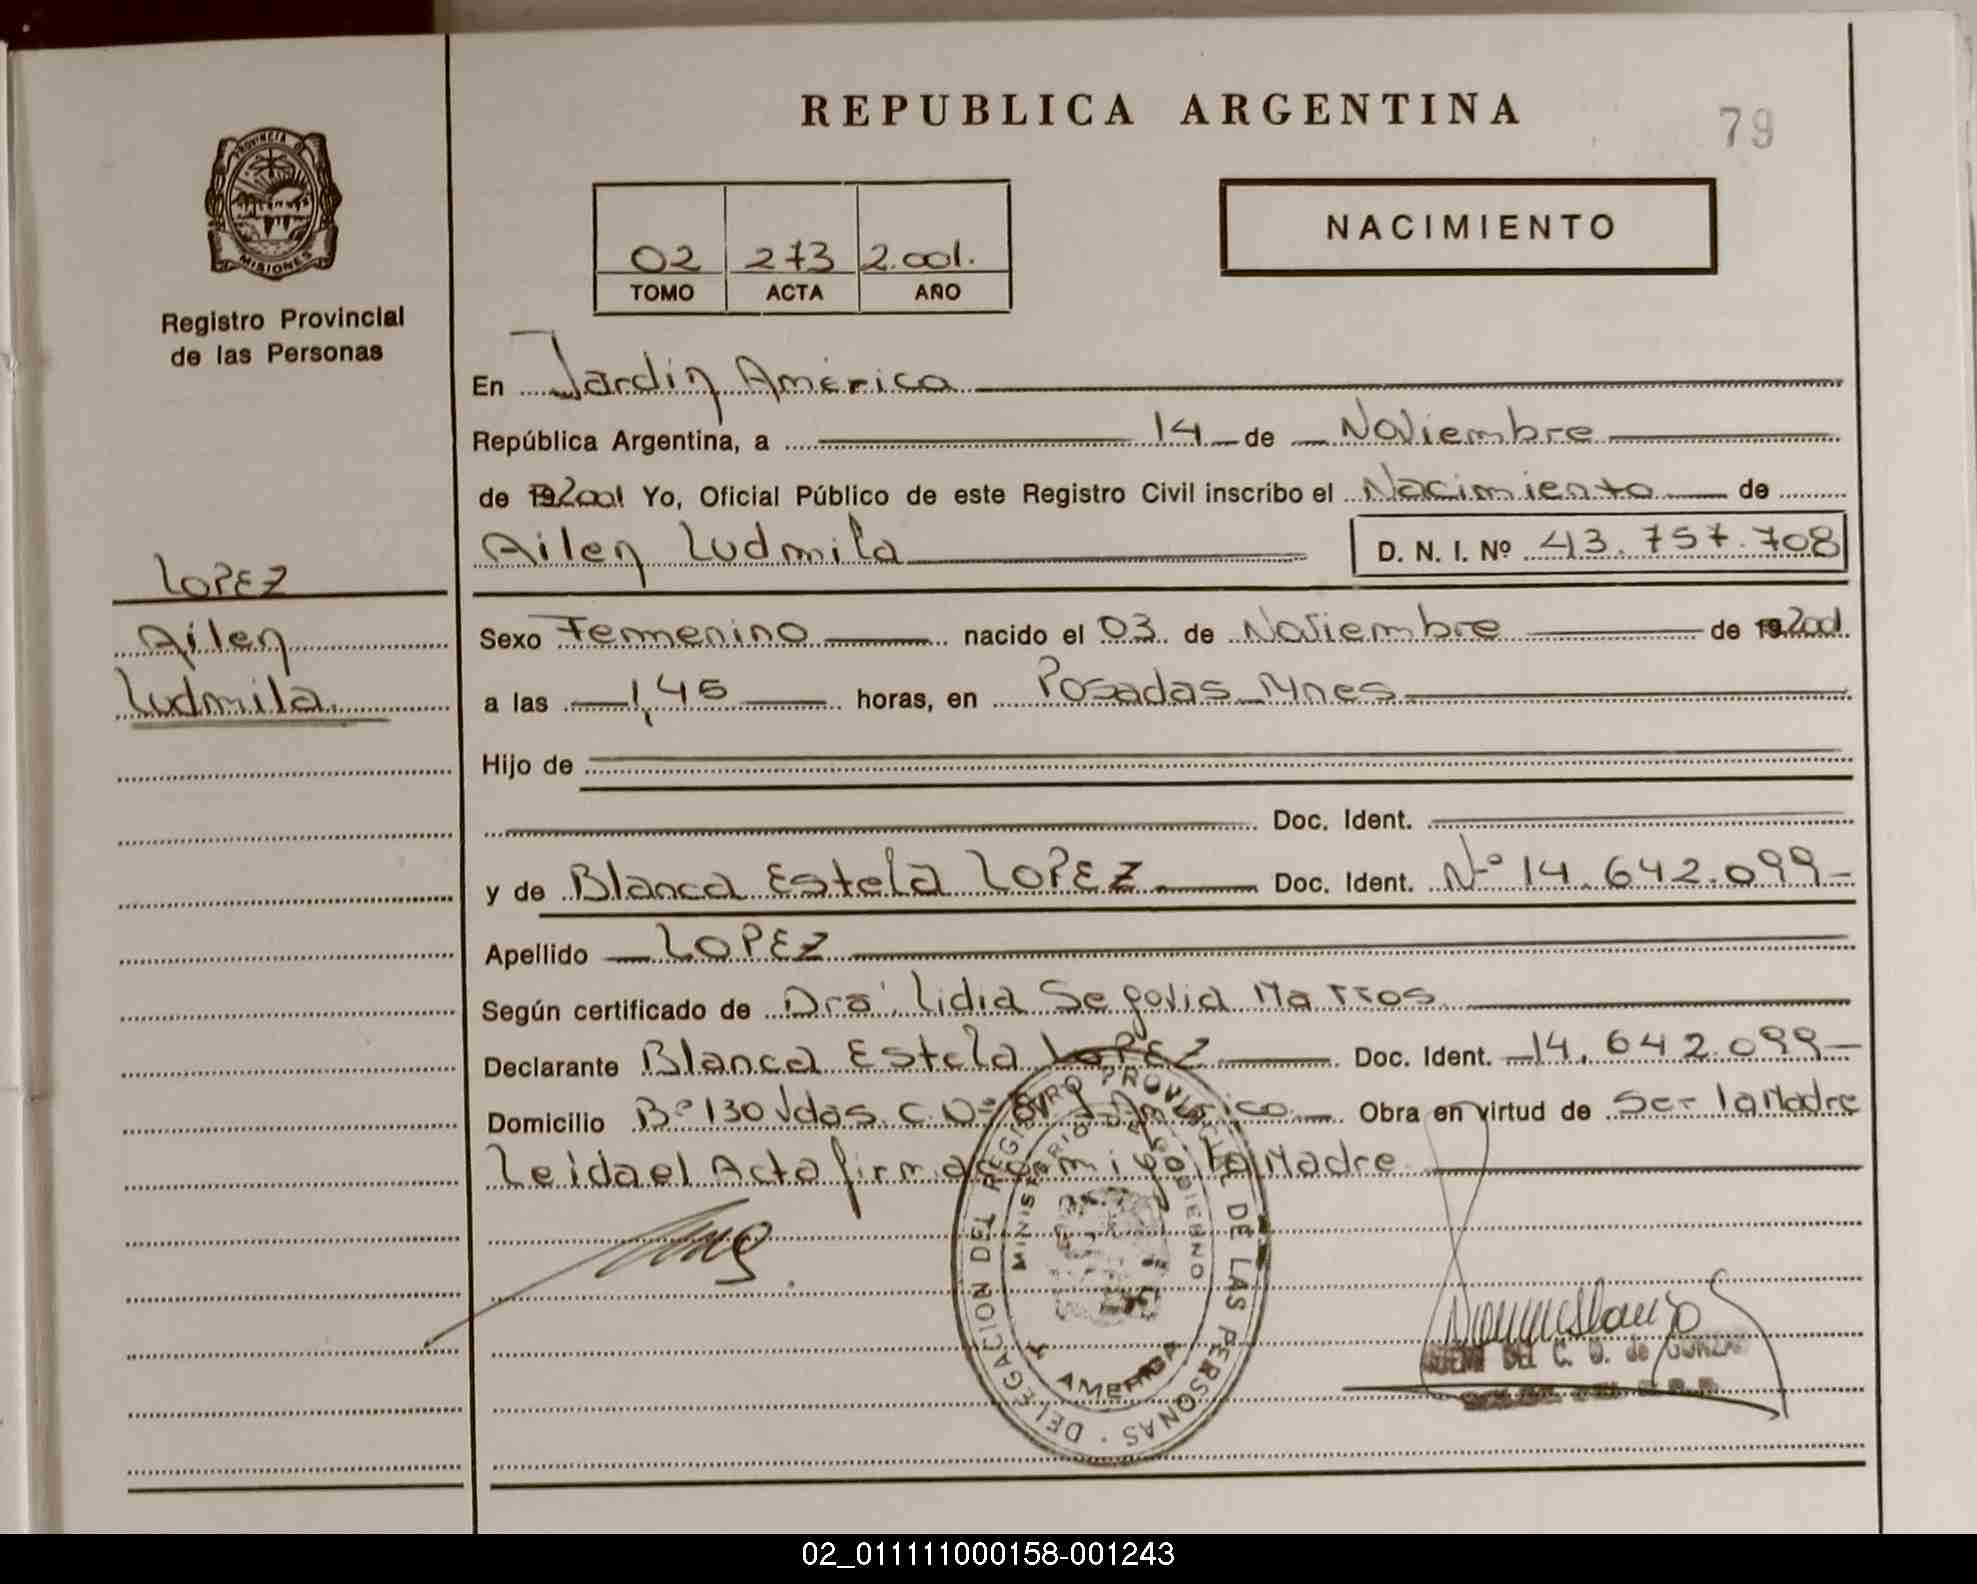 REPUBLICA ARGENTINA
79
PROVINCIA DE
MISIONES
Registro Provincial
de las Personas
NACIMIENTO
02 273 2.001.
TOMO ACTA AÑO
En Jardin América
República Argentina, a 14 de Noviembre
de 192001 Yo, Oficial Público de este Registro Civil inscribo el Nacimiento de
Ailen Ludmila D. N. I. Nº 43.757.708
LOPEZ
Ailen
Ludmila
Sexo Femenino nacido el 03 de Noviembre de 192001.
a las 1,45 horas, en Posadas Mnes
Hijo de
Doc. Ident.
y de Blanca Estela LOPEZ Doc. Ident. Nº 14.642.099
Apellido LOPEZ
Según certificado de Dra. Lidia Segovia Marros
Declarante Blanca Estela LOPEZ Doc. Ident. 14.642.099
Domicilio Bº 130 Vdas. C. Nº América Obra en virtud de Ser la Madre
Leida el Acta firma conmigo la Madre
DELEGACION DEL REGISTRO PROVINCIAL DE LAS PERSONAS
MINISTERIO DE GOBIERNO
AMERICA
DEL C. D. de
02_011111000158-001243